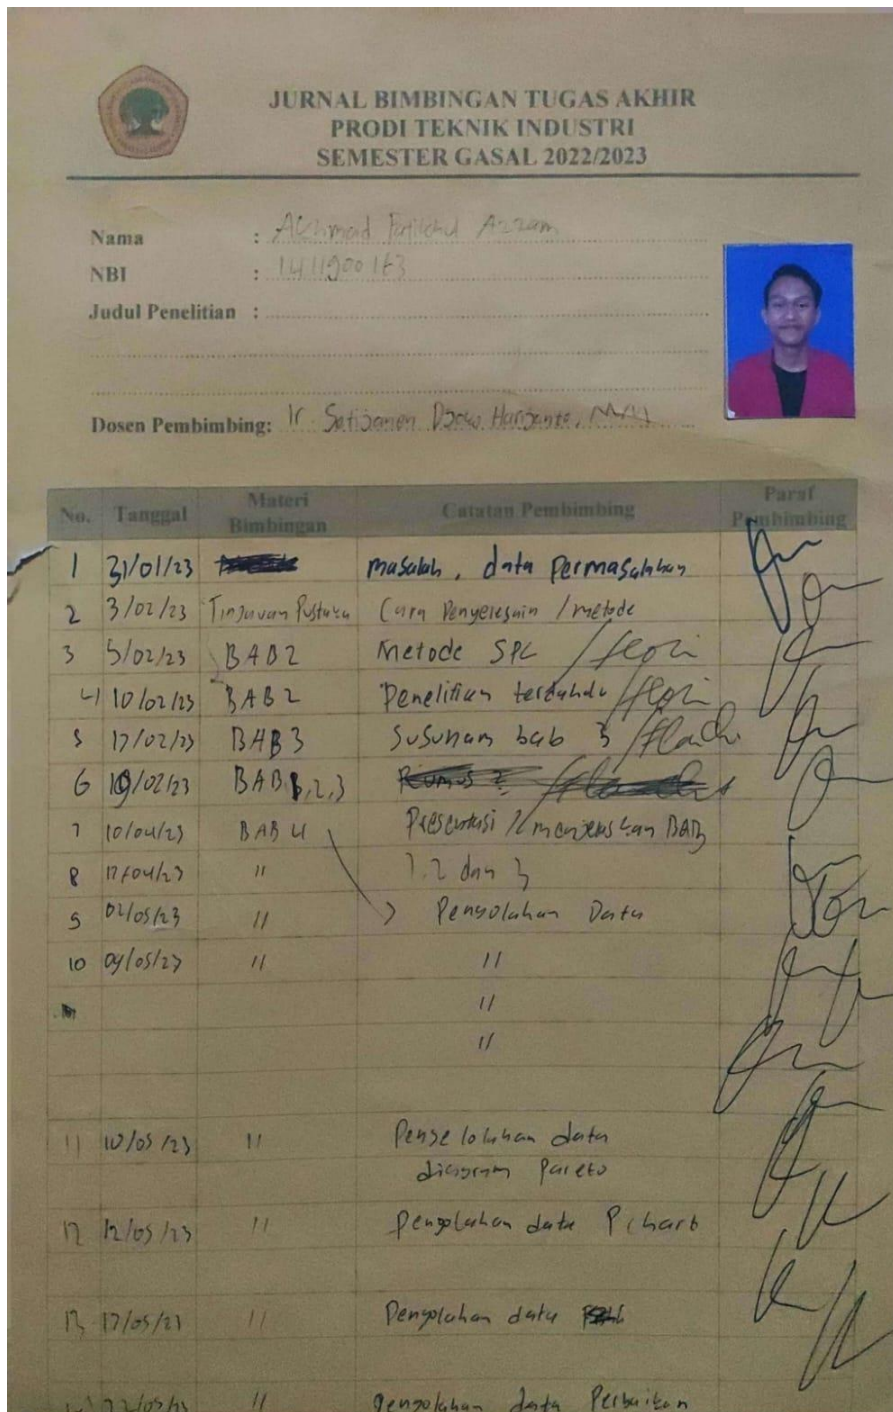 JURNAL BIMBINGAN TUGAS AKHIR
PRODI TEKNIK INDUSTRI
SEMESTER GASAL 2022/2023
Nama :
NBI :
Judul Penelitian :
Dosen Pembimbing: Ir.
No. Tanggal Materi Bimbingan Catatan Pembimbing Paraf Pembimbing
1 31/01/23 masalah, data Permasalahan
2 3/02/23 Tinjauan Pustaka Cara Penyelesain / metode
3 5/02/23 BAB 2 Metode SPC /
4 10/02/23 BAB 2 Penelitian terdahulu /
5 17/02/23 BAB 3 Susunan bab 3 /
6 BAB ,2,3
7 10/04/23 BAB 4 Presentasi / menjelaskan BAB
8 17/04/23 " 1,2 dan 3
9 02/05/23 " Pengolahan Data
10 09/05/23 " "
"
"
11 10/05/23 " data
diagram Pareto
12 12/05/23 " Pengolahan data P chart
13 17/05/23 " Pengolahan data
" Pengolahan data Perbaikan